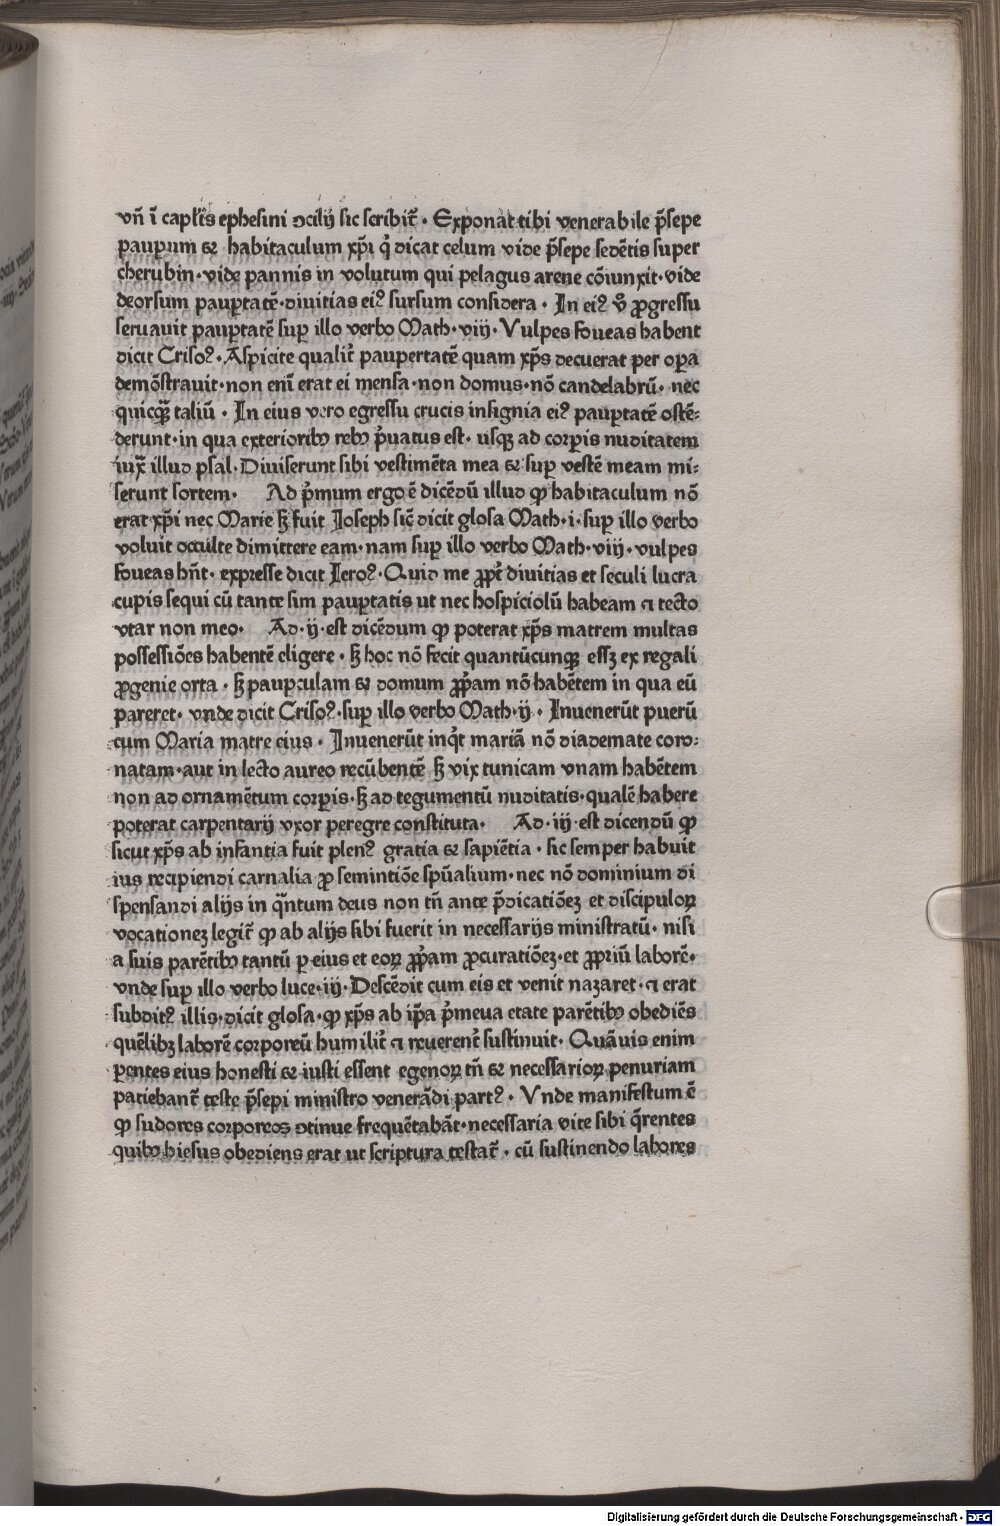 vn̄ ī caplīs ephesini ↄcilij sic scribit̄ · Exponat tibi venerabile p̄sepe
pauꝑum ⁊ habitaculum xp̄i q̇ dicat celum vide p̄sepe sedētis super
cherubin · vide pannis in volutum qui pelagus arene cōiunxit · vide
deorsum pauꝑtatē · diuitias eiꝰ sursum considera · In eiꝰ v̊ ꝓgressu
seruauit pauꝑtatē suꝑ illo verbo Math · viij · Vulpes foueas habent
dicit Crisoꝰ · Aspicite qualit̄ paupertatē quam xp̄s decuerat per oꝑa
demōstrauit · non enī erat ei mensa · non domus · nō candelabrū · nec
quicq̄ꝫ taliū · In eius vero egressu crucis insignia eiꝰ pauꝑtatē ostē:
derunt · in qua exteriorib⁹ reb⁹ p̄uatus est · usqꝫ ad corꝑis nuditatem
iux̄ illud psal · Diuiserunt sibi vestimēta mea ⁊ suꝑ vestē meam mi:
serunt sortem · Ad p̄mum ergo ē dicēdū illud ꝙ habitaculum nō
erat xp̄i nec Marie sꝫ fuit Ioseph sic̄ dicit glosa Math · i · suꝑ illo verbo
voluit occulte dimittere eam · nam suꝑ illo verbo Math · viij · vulpes
foueas hn̄t · expresse dicit Ieroꝰ · Quid me ꝓpt̄ diuitias et seculi lucra
cupis sequi cū tante sim pauꝑtatis ut nec hospiciolū habeam ⁊ tecto
vtar non meo · Ad · ij · est dicēdum ꝙ poterat xp̄s matrem multas
possessiōes habentē eligere · sꝫ hoc nō fecit quantūcunqꝫ essꝫ ex regali
ꝓgenie orta · sꝫ pauꝑculam ⁊ domum ꝓp̄am nō habētem in qua eū
pareret · vnde dicit Crisoꝰ · suꝑ illo verbo Math · ij · Inuenerūt puerū
cum Maria matre eius · Inuenerūt inq̇t mariā nō diademate coro:
natam · aut in lecto aureo recūbentē sꝫ vix tunicam vnam habētem
non ad ornamētum corꝑis · sꝫ ad tegumentū nuditatis · qualē habere
poterat carpentarij vxor peregre constituta · Ad · iij · est dicendū ꝙ
sicut xp̄s ab infantia fuit plenꝰ gratia ⁊ sapiētia · sic semper habuit
ius recipiendi carnalia ꝓ semintiōe spūalium · nec nō dominium di
spensandi alijs in q̄ntum deus non tn̄ ante p̄dicatiōeꝫ et discipuloꝝ
vocationeꝫ legit̄ ꝙ ab alijs sibi fuerit in necessarijs ministratū · nisi
a suis parētib⁹ tantū ꝑ eius et eoꝝ ꝓp̄am ꝓcuratiōeꝫ · et ꝓpriū laborē ·
vnde suꝑ illo verbo luce · iij · Descēdit cum eis et venit nazaret · ⁊ erat
subditꝰ illis · dicit glosa · ꝙ xp̄s ab ip̄a p̄meua etate parētib⁹ obediēs
quēlibꝫ laborē corporeū humilit̄ ⁊ reuerent̄ sustinuit · Quāuis enim
ꝑentes eius honesti ⁊ iusti essent egenoꝝ tn̄ ⁊ necessarioꝝ penuriam
patiebant̄ teste p̄sepi ministro venerādi partꝰ · Vnde manifestum ē
ꝙ sudores corporeos ↄtinue frequētabāt · necessaria vite sibi q̄rentes
quib⁹ hiesus obediens erat ut scriptura testat̄ · cū sustinendo labores
Digitalisierung gefördert durch die Deutsche Forschungsgemeinschaft - DFG